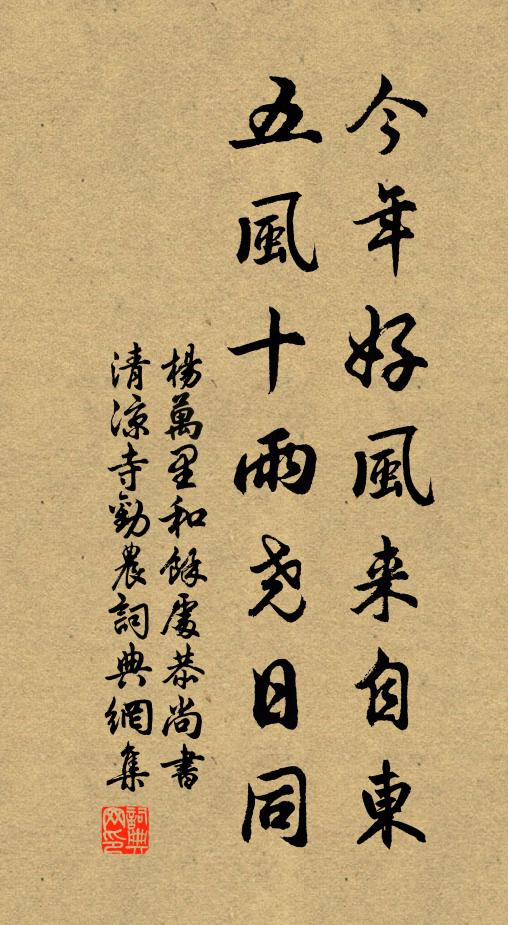 今年好風来自東
五風十雨尧日同
楊萬里和餘處恭尚書
清涼寺勸農詞典網集
詞典网印